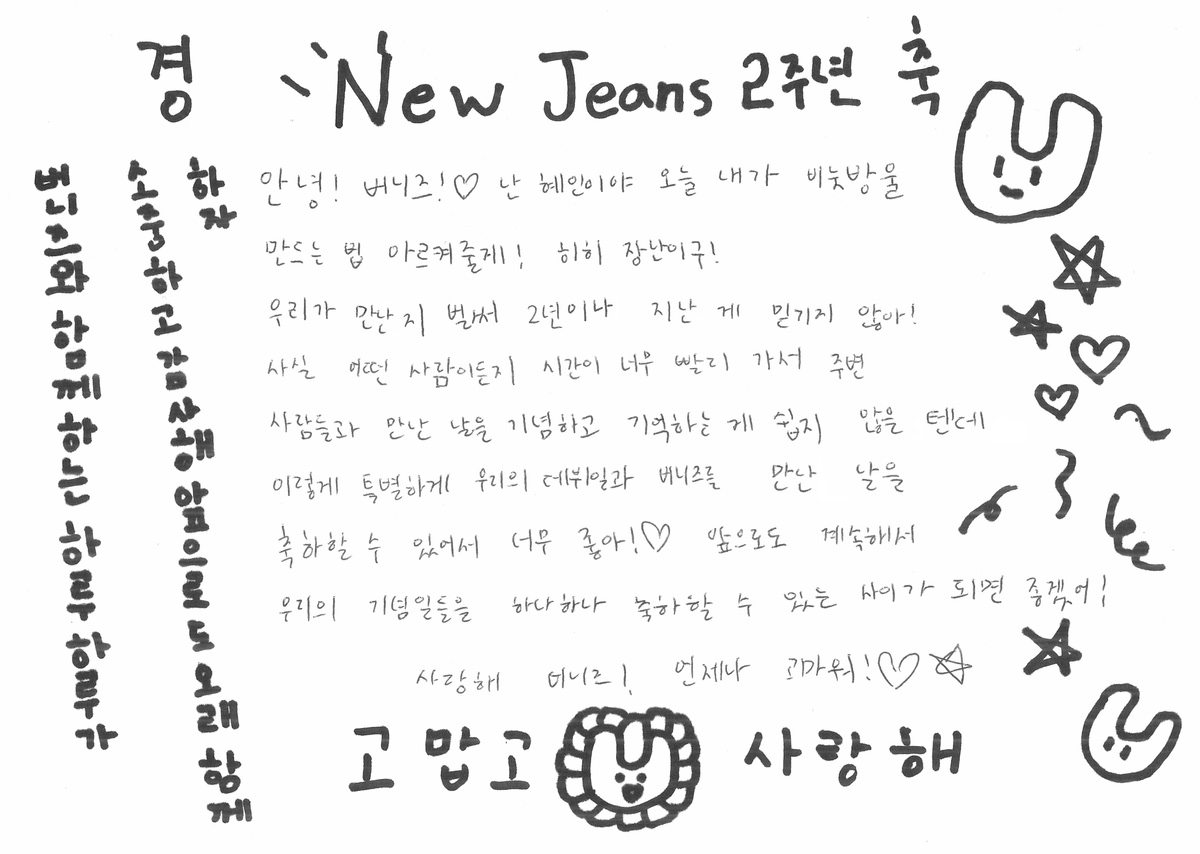 경 New Jeans 2주년 축
버니즈와 함께하는 하루하루가
소중하고 감사해 앞으로도 오래 함께
하자
안녕! 버니즈!♡ 난 혜인이야 오늘 내가 비눗방울
만드는 법 아르켜줄게! 히히 장난이구!
우리가 만난지 벌써 2년이나 지난 게 믿기지 않아!
사실 어떤 사람이든지 시간이 너무 빨리 가서 주변
사람들과 만난 날을 기념하고 기억하는 게 쉽지 않을 텐데
이렇게 특별하게 우리의 데뷔일과 버니즈를 만난 날을
축하할 수 있어서 너무 좋아!♡ 앞으로도 계속해서
우리의 기념일들을 하나하나 축하할 수 있는 사이가 되면 좋겠어!
사랑해 버니즈! 언제나 고마워!♡☆
고맙고 사랑해